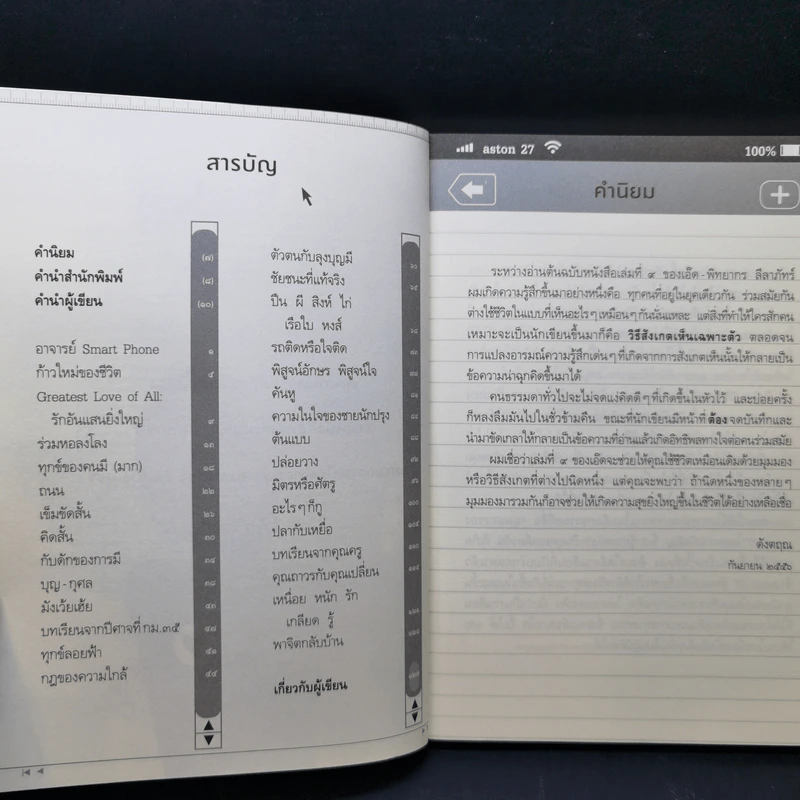 สารบัญ
คำนิยม (๗)
คำนำสำนักพิมพ์ (๘)
คำนำผู้เขียน (๑๐)
อาจารย์ Smart Phone ๑
ก้าวใหม่ของชีวิต ๔
Greatest Love of All:
รักอันแสนยิ่งใหญ่ ๙
ร่วมหอลงโลง ๑๓
ทุกข์ของคนมี (มาก) ๑๘
ถนน ๒๒
เข็มขัดสั้น ๒๖
คิดสั้น ๓๐
กับดักของการมี ๓๔
บุญ - กุศล ๓๘
มังเว้ยเฮ้ย ๔๓
บทเรียนจากปีศาจที่ กม.๓๕ ๔๗
ทุกข์ลอยฟ้า ๕๑
กฎของความใกล้ ๕๕
ตัวตนกับลุงบุญมี ๖๐
ชัยชนะที่แท้จริง ๖๕
ปืน ผี สิงห์ ไก่
เรือใบ หงส์
รถติดหรือใจติด
พิสูจน์อักษร พิสูจน์ใจ
คันหู
ความในใจของชายนักปรุง
ต้นแบบ
ปล่อยวาง
มิตรหรือศัตรู
อะไรๆ ก็กู
ปลากับเหยื่อ
บทเรียนจากคุณครู
คุณถาวรกับคุณเปลี่ยน
เหนื่อย หนัก รัก
เกลียด รู้
พาจิตกลับบ้าน
เกี่ยวกับผู้เขียน
aston 27 100%
คำนิยม
ระหว่างอ่านต้นฉบับหนังสือเล่มที่ ๙ ของเอ๊ด-พิทยากร ลีลาภัทร์
ผมเกิดความรู้สึกขึ้นมาอย่างหนึ่งคือ ทุกคนที่อยู่ในยุคเดียวกัน ร่วมสมัยกัน
ต่างใช้ชีวิตในแบบที่เห็นอะไรๆ เหมือนๆ กันนั่นแหละ แต่สิ่งที่ทำให้ใครสักคน
เหมาะจะเป็นนักเขียนขึ้นมาก็คือ วิธีสังเกตเห็นเฉพาะตัว ตลอดจน
การแปลงอารมณ์ความรู้สึกเด่นๆ ที่เกิดจากการสังเกตเห็นนั้นให้กลายเป็น
ข้อความน่าฉุกคิดขึ้นมาได้
คนธรรมดาทั่วไปจะไม่จดแง่คิดดีๆ ที่เกิดขึ้นในหัวไว้ และบ่อยครั้ง
ก็หลงลืมมันไปในชั่วข้ามคืน ขณะที่นักเขียนมีหน้าที่ ต้อง จดบันทึกและ
นำมาขัดเกลาให้กลายเป็นข้อความที่อ่านแล้วเกิดอิทธิพลทางใจต่อคนร่วมสมัย
ผมเชื่อว่าเล่มที่ ๙ ของเอ๊ดจะช่วยให้คุณใช้ชีวิตเหมือนเดิมด้วยมุมมอง
หรือวิธีสังเกตที่ต่างไปนิดหนึ่ง แต่คุณจะพบว่า ถ้านิดหนึ่งของหลายๆ
มุมมองมารวมกันก็อาจช่วยให้เกิดความสุขยิ่งใหญ่ขึ้นในชีวิตได้อย่างเหลือเชื่อ
ดังตฤณ
กันยายน ๒๕๕๖